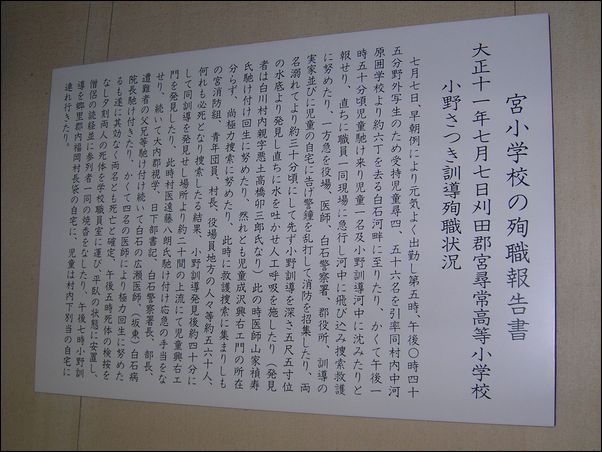 宮小学校の殉職報告書
大正十一年七月七日刈田郡宮尋常高等小学校
小野さつき訓導殉職状況
七月七日、早朝例により元気よく出勤し第五時、午後〇時四十
五分野外写生のため受持児童尋四、五十六名を引率同村内中河
原囲学校より約六丁を去る白石河畔に至りたり、かくて午後一
時五十分頃児童馳け来り児童一名及小野訓導河中に沈みたりと
報せり、直ちに職員一同現場に急行し河中に飛び込み捜索救護
に努めたり、一方急を役場、医師、白石警察署、郡役所、訓導の
実家並びに児童の自宅に告げ警鐘を乱打して消防を招集したり、両
名溺れてより約三十分頃にして先ず小野訓導を深さ五尺五寸位
の水底より発見し直ちに水を吐かせ人工呼吸を施したり（発見
者は白川村内親字悪土高橋卯三郎氏なり）此の時医師山家禎寿
氏馳け付け回生に努めたり、然れとも児童成沢興右エ門の所在
分らず、尚極力捜索に努めたり、此時に救護捜索に集まりしも
の宮消防組、青年団員、村長、役場員地方の人々等約五六十人、
何れも必死となり捜索したる結果、小野訓導発見後約四十分に
して同訓導を発見せし場所より約二十間の上流にて児童興右エ
門を発見したり、此時村医遠藤八朗氏馳け付け応急の手当をな
せり、続いて大内郡視学、日下部書記、白石警察署長、部長、
遭難者の父兄等馳け付け続いて白石の広瀬医師、（坂東）白石病
院長馳け付きたり、かくて四名の医師により極力回生に努めた
るも遂に其効なく両名とも死亡と確定、午後五時死体の検按を
なし夕刻両人の死体を学校職員室に運び、平臥の状態に安置し、
僧侶の読経並に参列者一同の焼香をなしたり、午後七時小野訓
導を郷里郡内福岡村長袋の自宅に、児童は村内下別当の自宅に
連れ行きたり。